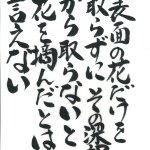 表面の花だけを
取らずにその深根
から取らないと
花を摘んだとは
言えない